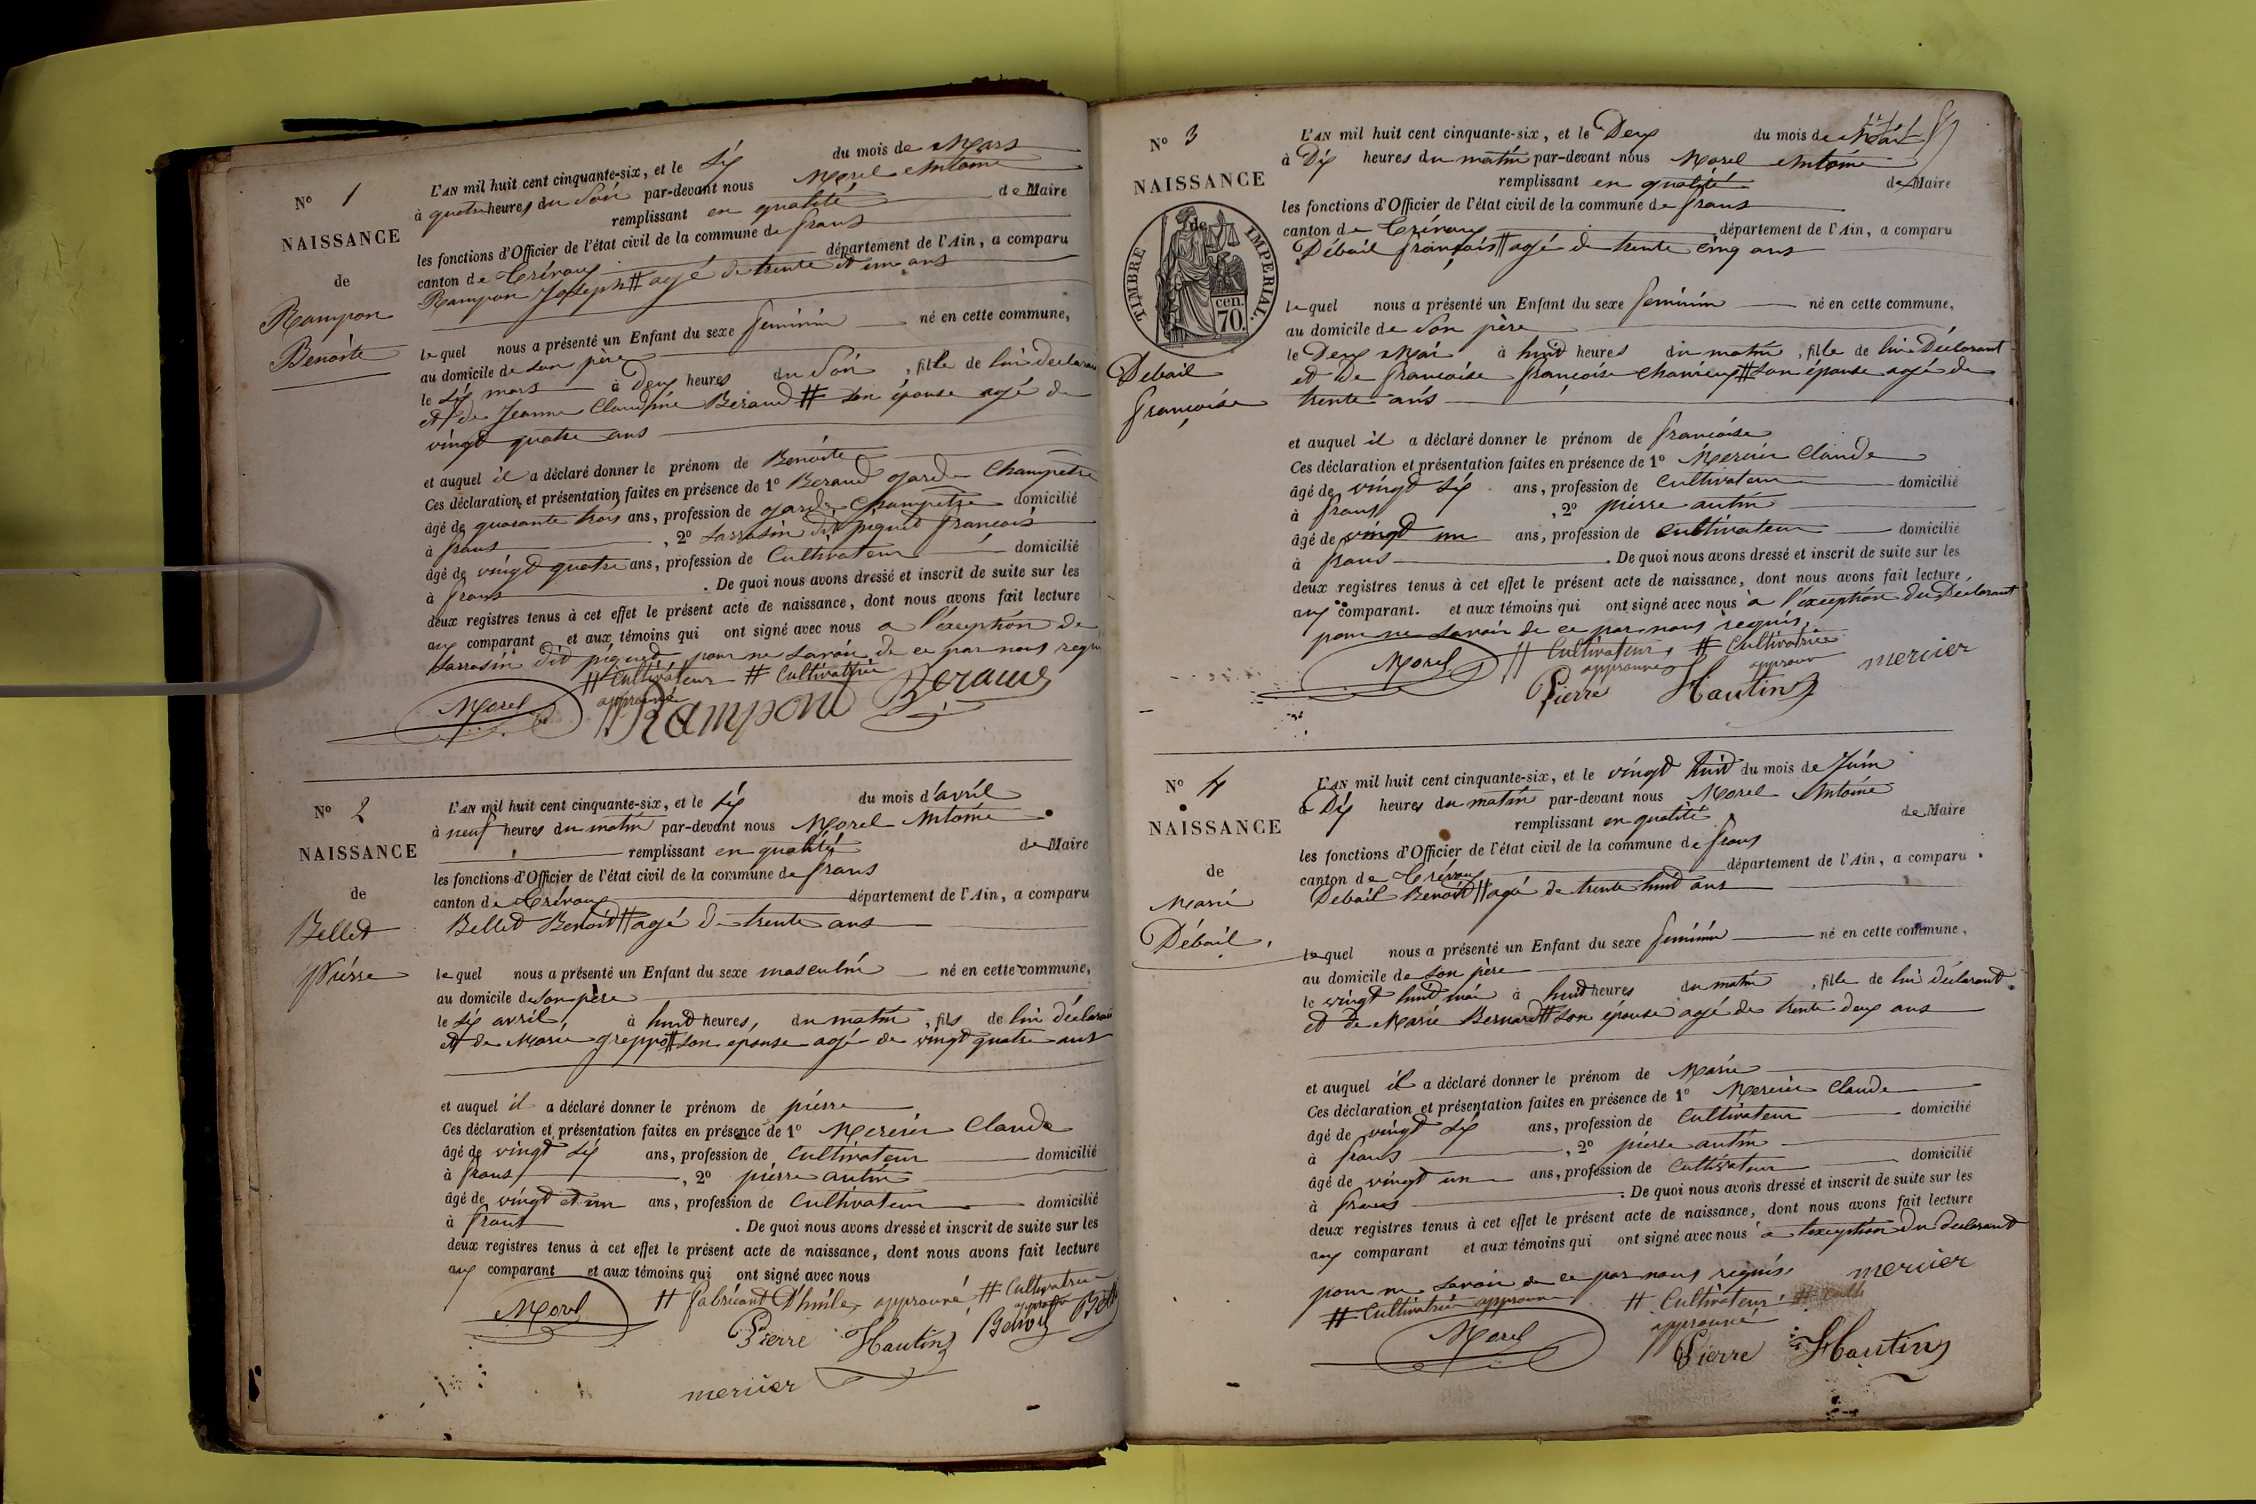 N° 1
NAISSANCE
de
Rampon
Benoite
L'AN mil huit cent cinquante-six, et le Six du mois de Mars
à quatre heures du Soir par-devant nous Morel Antoine
remplissant en qualité de Maire
les fonctions d'Officier de l'état civil de la commune de frans
canton de Trévoux département de l'Ain, a comparu
Rampon Joseph # agé de trente et un ans
lequel nous a présenté un Enfant du sexe feminin né en cette commune,
au domicile de son père
le Six mars à Deux heures du Soir, fille de lui declarant
et de Jeanne Claudine Beraud # son épouse agé de
vingt quatre ans
et auquel il a déclaré donner le prénom de Benoite
Ces déclaration et présentation faites en présence de 1° Beraud garde Champetre
âgé de quarante trois ans, profession de garde Champetre domicilié
à frans, 2° Sarrasin dit piquet francois
âgé de vingt quatre ans, profession de Cultivateur domicilié
à frans. De quoi nous avons dressé et inscrit de suite sur les
deux registres tenus à cet effet le présent acte de naissance, dont nous avons fait lecture
aux comparant et aux témoins qui ont signé avec nous a l'exception de
Sarrasin dit piquet pour ne savoir de ce par nous requis
# Cultivateur # Cultivatrice
approuvé
Morel Rampon Beraud
N° 2
NAISSANCE
de
Bellet
Pierre
L'AN mil huit cent cinquante-six, et le Six du mois d'avril
à neuf heures du matin par-devant nous Morel Antoine
remplissant en qualité de Maire
les fonctions d'Officier de l'état civil de la commune de frans
canton de Trévoux département de l'Ain, a comparu
Bellet Benoit # agé de trente ans
lequel nous a présenté un Enfant du sexe masculin né en cette commune,
au domicile de son père
le Six avril, à huit heures, du matin, fils de lui déclarant
et de Marie greppo # son epouse agé de vingt quatre ans
et auquel il a déclaré donner le prénom de pierre
Ces déclaration et présentation faites en présence de 1° Mercier Claude
âgé de vingt Six ans, profession de Cultivateur domicilié
à frans, 2° pierre autin
âgé de vingt et un ans, profession de Cultivateur domicilié
à frans. De quoi nous avons dressé et inscrit de suite sur les
deux registres tenus à cet effet le présent acte de naissance, dont nous avons fait lecture
aux comparant et aux témoins qui ont signé avec nous
# fabricant D'huile, approuvé # Cultivatrice
approuvé
Morel Pierre Hautin Benoit
mercier
N° 3
NAISSANCE
de
TIMBRE IMPERIAL.
70 cen.
Debail
françoise
L'AN mil huit cent cinquante-six, et le Deux du mois de Mai
à Dix heures du matin par-devant nous Morel Antoine
remplissant en qualité de Maire
les fonctions d'Officier de l'état civil de la commune de frans
canton de Trévoux département de l'Ain, a comparu
Débail françois # agé de trente cinq ans
lequel nous a présenté un Enfant du sexe feminin né en cette commune,
au domicile de Son père
le Deux Mai à huit heures du matin, fille de lui Déclarant
et De francoise francoise # son épouse agé de
trente ans
et auquel il a déclaré donner le prénom de francoise
Ces déclaration et présentation faites en présence de 1° Mercier Claude
âgé de vingt Six ans, profession de Cultivateur domicilié
à frans, 2° pierre autin
âgé de vingt un ans, profession de Cultivateur domicilié
à frans. De quoi nous avons dressé et inscrit de suite sur les
deux registres tenus à cet effet le présent acte de naissance, dont nous avons fait lecture
aux comparant. et aux témoins qui ont signé avec nous a l'exception du Déclarant
pour ne savoir de ce par nous requis,
# Cultivateur, # Cultivatrice
approuvé approuv
Morel Pierre Hautin mercier
N° 4
NAISSANCE
de
Marie
Débail,
L'AN mil huit cent cinquante-six, et le vingt huit du mois de Juin
à Dix heures du matin par-devant nous Morel Antoine
remplissant en qualité de Maire
les fonctions d'Officier de l'état civil de la commune de frans
canton de Trévoux département de l'Ain, a comparu
Debail Benoit # agé de trente huit ans
lequel nous a présenté un Enfant du sexe feminin né en cette commune,
au domicile de son père
le vingt huit à huit heures du matin, fille de lui déclarant
et de Marie Bernard # son épouse agé de trente deux ans
et auquel il a déclaré donner le prénom de Marie
Ces déclaration et présentation faites en présence de 1° Mercier Claude
âgé de vingt Six ans, profession de Cultivateur domicilié
à frans, 2° pierre autin
âgé de vingt un ans, profession de Cultivateur domicilié
à frans. De quoi nous avons dressé et inscrit de suite sur les
deux registres tenus à cet effet le présent acte de naissance, dont nous avons fait lecture
aux comparant et aux témoins qui ont signé avec nous a l'exception du declarant
pour ne savoir de ce par nous requis. mercier
# Cultivatrice approuvé # Cultivateur
approuvé
Morel Pierre Hautin